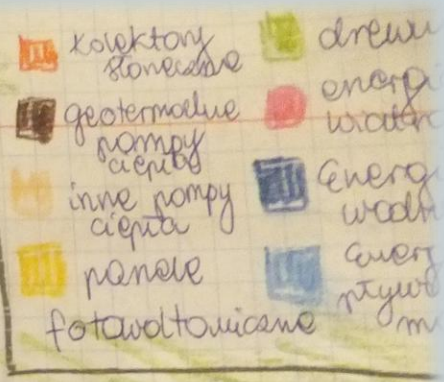 kolektory
słoneczne
geotermalne
pompy
ciepła
inne pompy
ciepła
panele
fotowoltaiczne
drewn
energi
wiatr
Energ
wodn
Energ
pływó
m